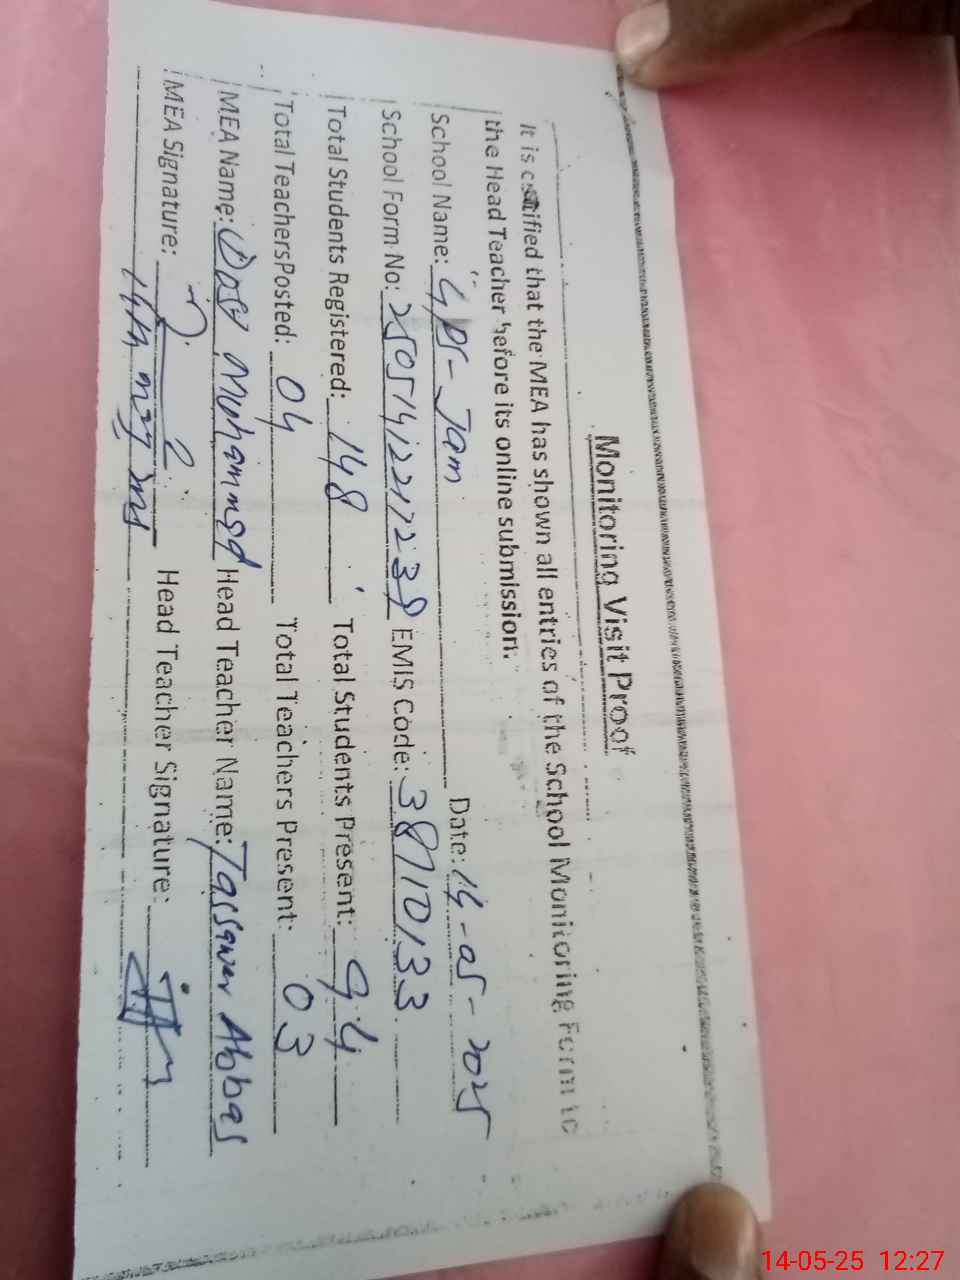 Monitoring Visit Proof
It is certified that the MEA has shown all entries of the School Monitoring Form to
the Head Teacher before its online submission.
School Name: GPS- Jam Date: 14-05-2025
School Form No: EMIS Code: 38710133
Total Students Registered: 148 Total Students Present: 94
Total Teachers Posted: 04 Total Teachers Present: 03
MEA Name: Dost Muhammad Head Teacher Name: Tassawer Abbas
MEA Signature: Head Teacher Signature:
14-05-25 12:27